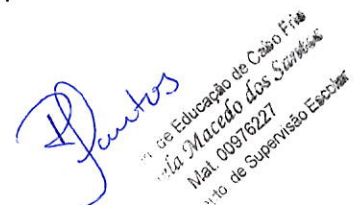 Santos
de Educação de Cabo Frio
Macedo dos Santos
Mat. 00976227
de Supervisão Escolar